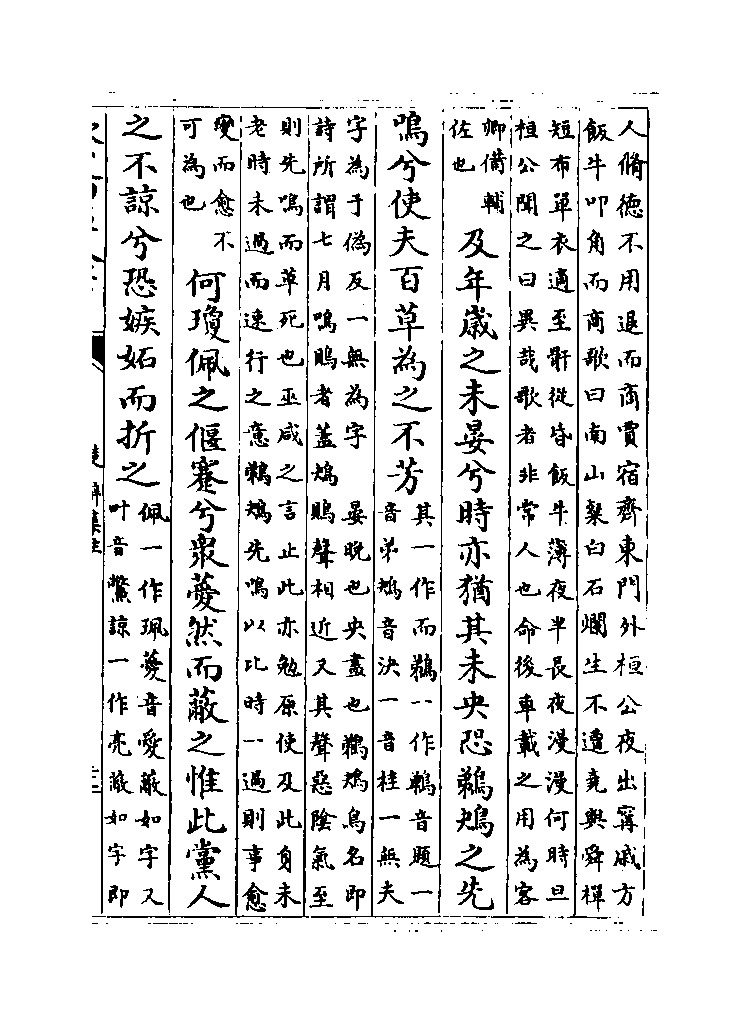 人脩德不用退而商賈宿齊東門外桓公夜出甯戚方
飯牛叩角而商歌曰南山粲白石爛生不遭堯與舜禪
短布單衣適至骭從昏飯牛薄夜半長夜漫漫何時旦
桓公聞之曰異哉歌者非常人也命後車載之用為客
卿備輔
佐也
及年歲之未晏兮時亦猶其未央恐鵜鴂之先
鳴兮使夫百草為之不芳
其一作而鵜一作鷤音題一
音弟鴂音決一音桂一無夫
字為于偽反一無為字
晏晚也央盡也鵜鴂鳥名即
詩所謂七月鳴鵙者蓋鴂
鵙聲相近又其聲惡陰氣至
則先鳴而草死也巫咸之言止此亦勉原使及此身未
老時未過而速行之意鵜鴂先鳴以比時一過則事愈
變而愈不
可為也
何瓊佩之偃蹇兮衆薆然而蔽之惟此黨人
之不諒兮恐嫉妬而折之
佩一作珮薆音愛蔽如字又
叶音鷩諒一作亮蔽如字即
楚辭集注